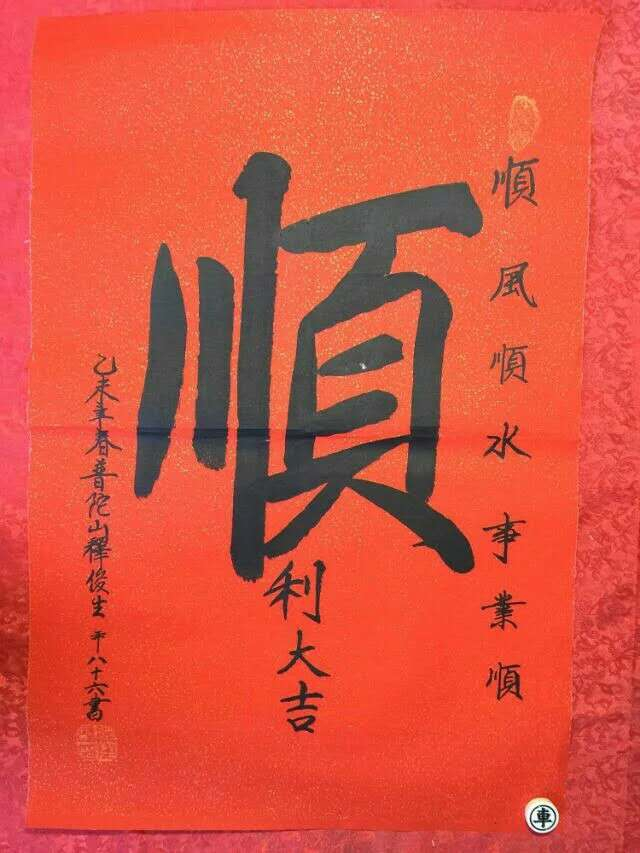 順風順水事業順
順
利大吉
乙未年春普陀山釋俊生年八十六書
車